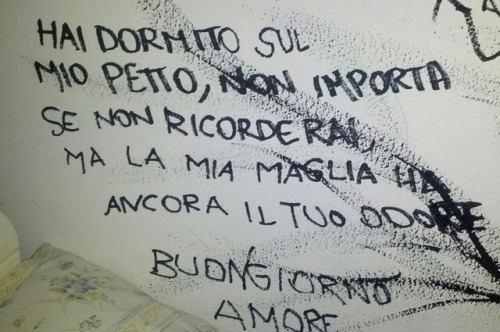 HAI DORMITO SUL
MIO PETTO, NON IMPORTA
SE NON RICORDERAI,
MA LA MIA MAGLIA HA
ANCORA IL TUO ODORE
BUONGIORNO
AMORE